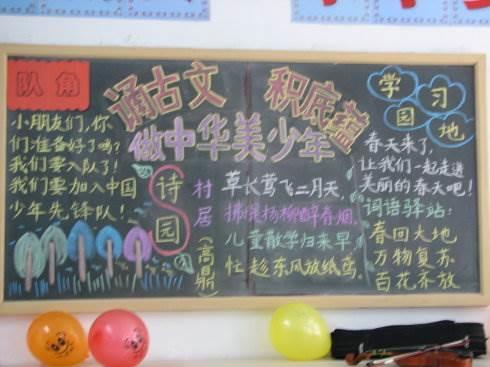 诵古文 积底蕴
做中华美少年
队角
小朋友们,你
们准备好了吗?
我们要入队了!
我们要加入中国
少年先锋队!
诗园
村居
(高鼎)
草长莺飞二月天,
拂堤杨柳醉春烟。
儿童散学归来早,
忙趁东风放纸鸢。
学习
园地
春天来了,
让我们一起走进
美丽的春天吧!
词语驿站:
春回大地
万物复苏
百花齐放